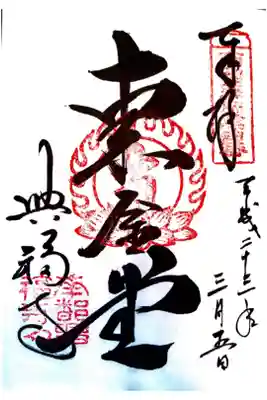 奉拝
平成二十三年
三月五日
東金堂
興福寺